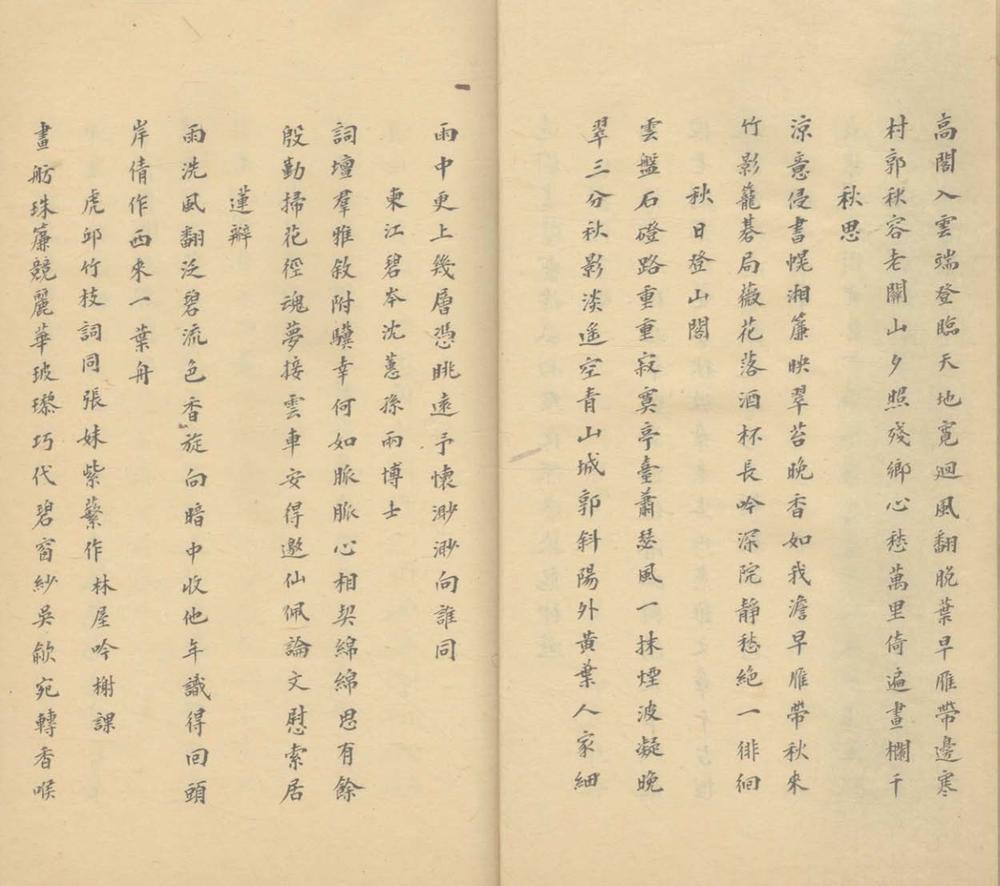 高閣入雲端登臨天地寬迴風翻脫葉早雁帶邊寒
村郭秋容老關山夕照殘鄉心愁萬里倚遍畫欄干
秋思
涼意侵書幌湘簾映翠苔晚香如我澹早雁帶秋來
竹影籠碁局薇花落酒杯長吟深院靜愁絕一徘徊
秋日登山閣
雲盤石磴路重重寂寞亭臺蕭瑟風一抹煙波凝晚
翠三分秋影淡遙空青山城郭斜陽外黃葉人家細
雨中更上幾層憑眺遠予懷渺渺向誰同
東江碧岑沈蕙孫兩博士
詞壇羣雅敘附驥幸何如脈脈心相契綿綿思有餘
殷勤掃花徑魂夢接雲車安得邀仙佩論文慰索居
蓮瓣
雨洗風翻泛碧流色香旋向暗中收他年識得回頭
岸倩作西來一葉舟
虎邱竹枝詞同張妹紫蘩作林屋吟榭課
畫舫珠簾競麗華玻瓈巧代碧窗紗吳歈宛轉香喉